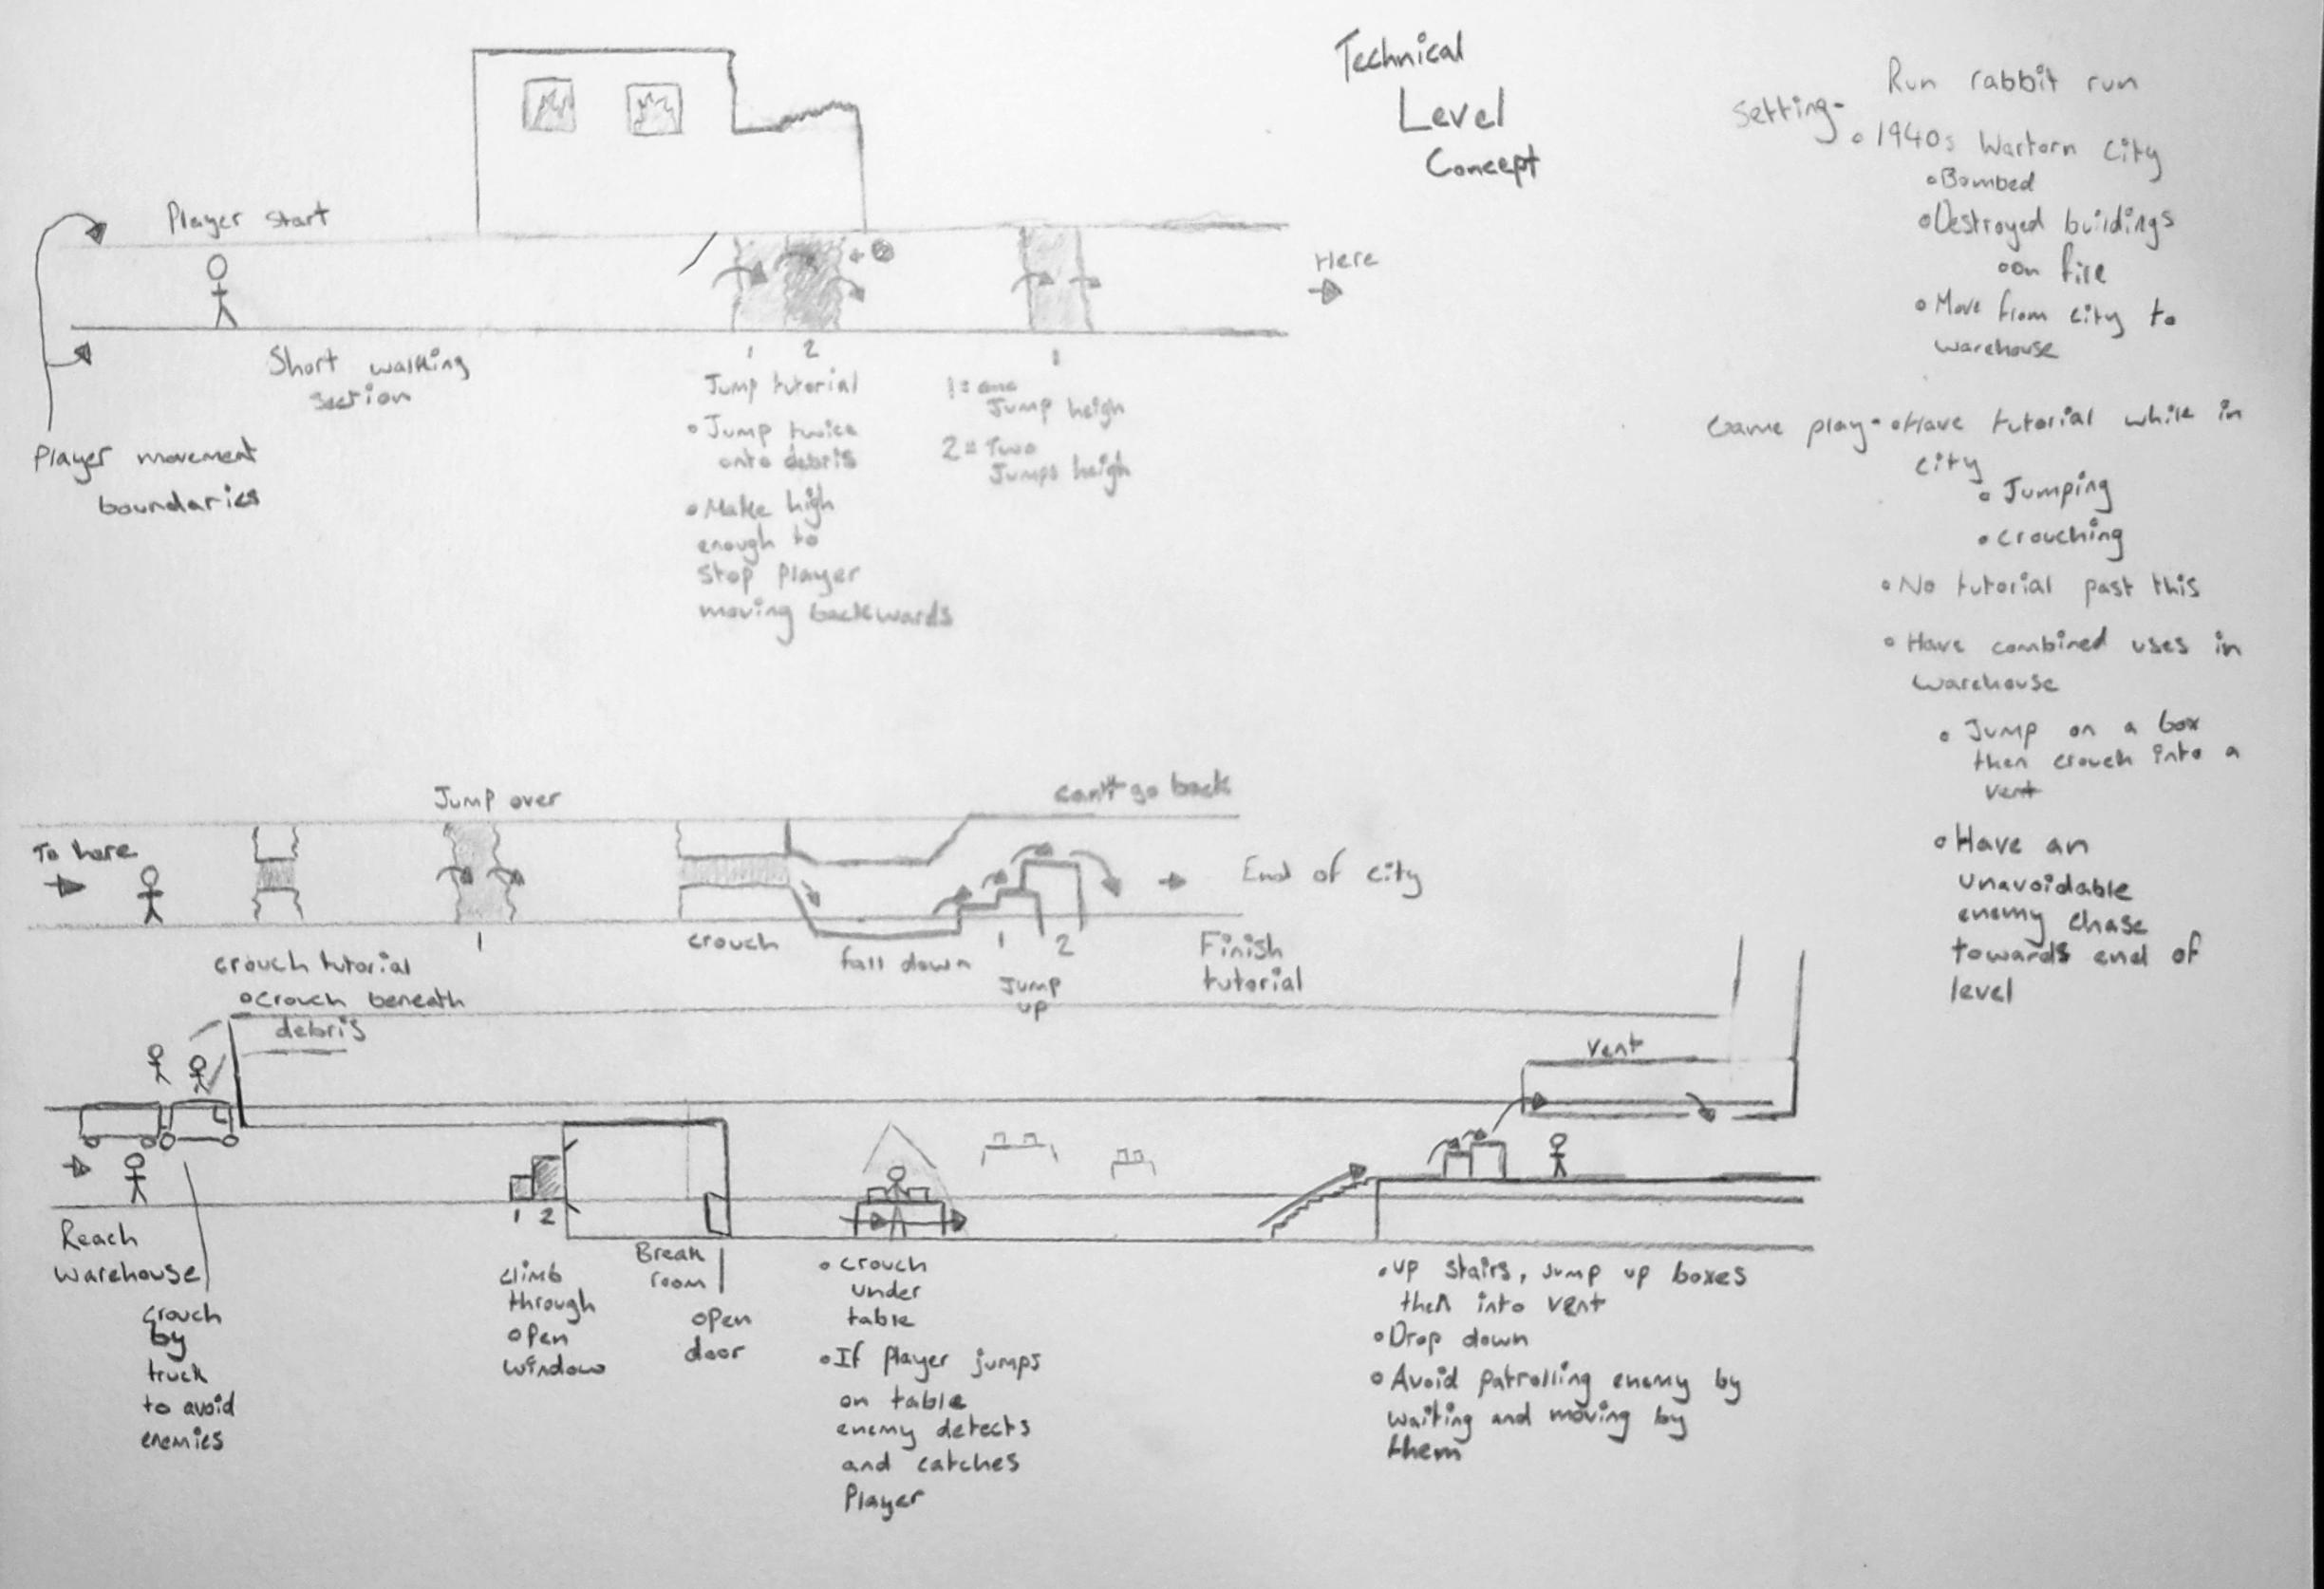 Technical
Level
Concept
Run rabbit run
Setting-
1940s Wartorn City
Bombed
Destroyed buildings
on fire
Move from city to
warehouse
Game play- Have tutorial while in
city
Jumping
crouching
No tutorial past this
Have combined uses in
warehouse
Jump on a box
then crouch into a
vent
Have an
unavoidable
enemy chase
towards end of
level
Player start
Here
Short walking
section
Player movement
boundaries
1 2
Jump tutorial
Jump twice
onto debris
Make high
enough to
stop player
moving backwards
1
1 = one
Jump heigh
2 = Two
Jumps heigh
To here
Jump over
can't go back
End of city
crouch tutorial
crouch beneath
debris
1
crouch
fall down
1 2
Jump
up
Finish
tutorial
Vent
Reach
warehouse
crouch
by
truck
to avoid
enemies
1 2
climb
through
open
window
Break
room
open
door
crouch
under
table
If player jumps
on table
enemy detects
and catches
Player
up stairs, jump up boxes
then into vent
Drop down
Avoid patrolling enemy by
waiting and moving by
them